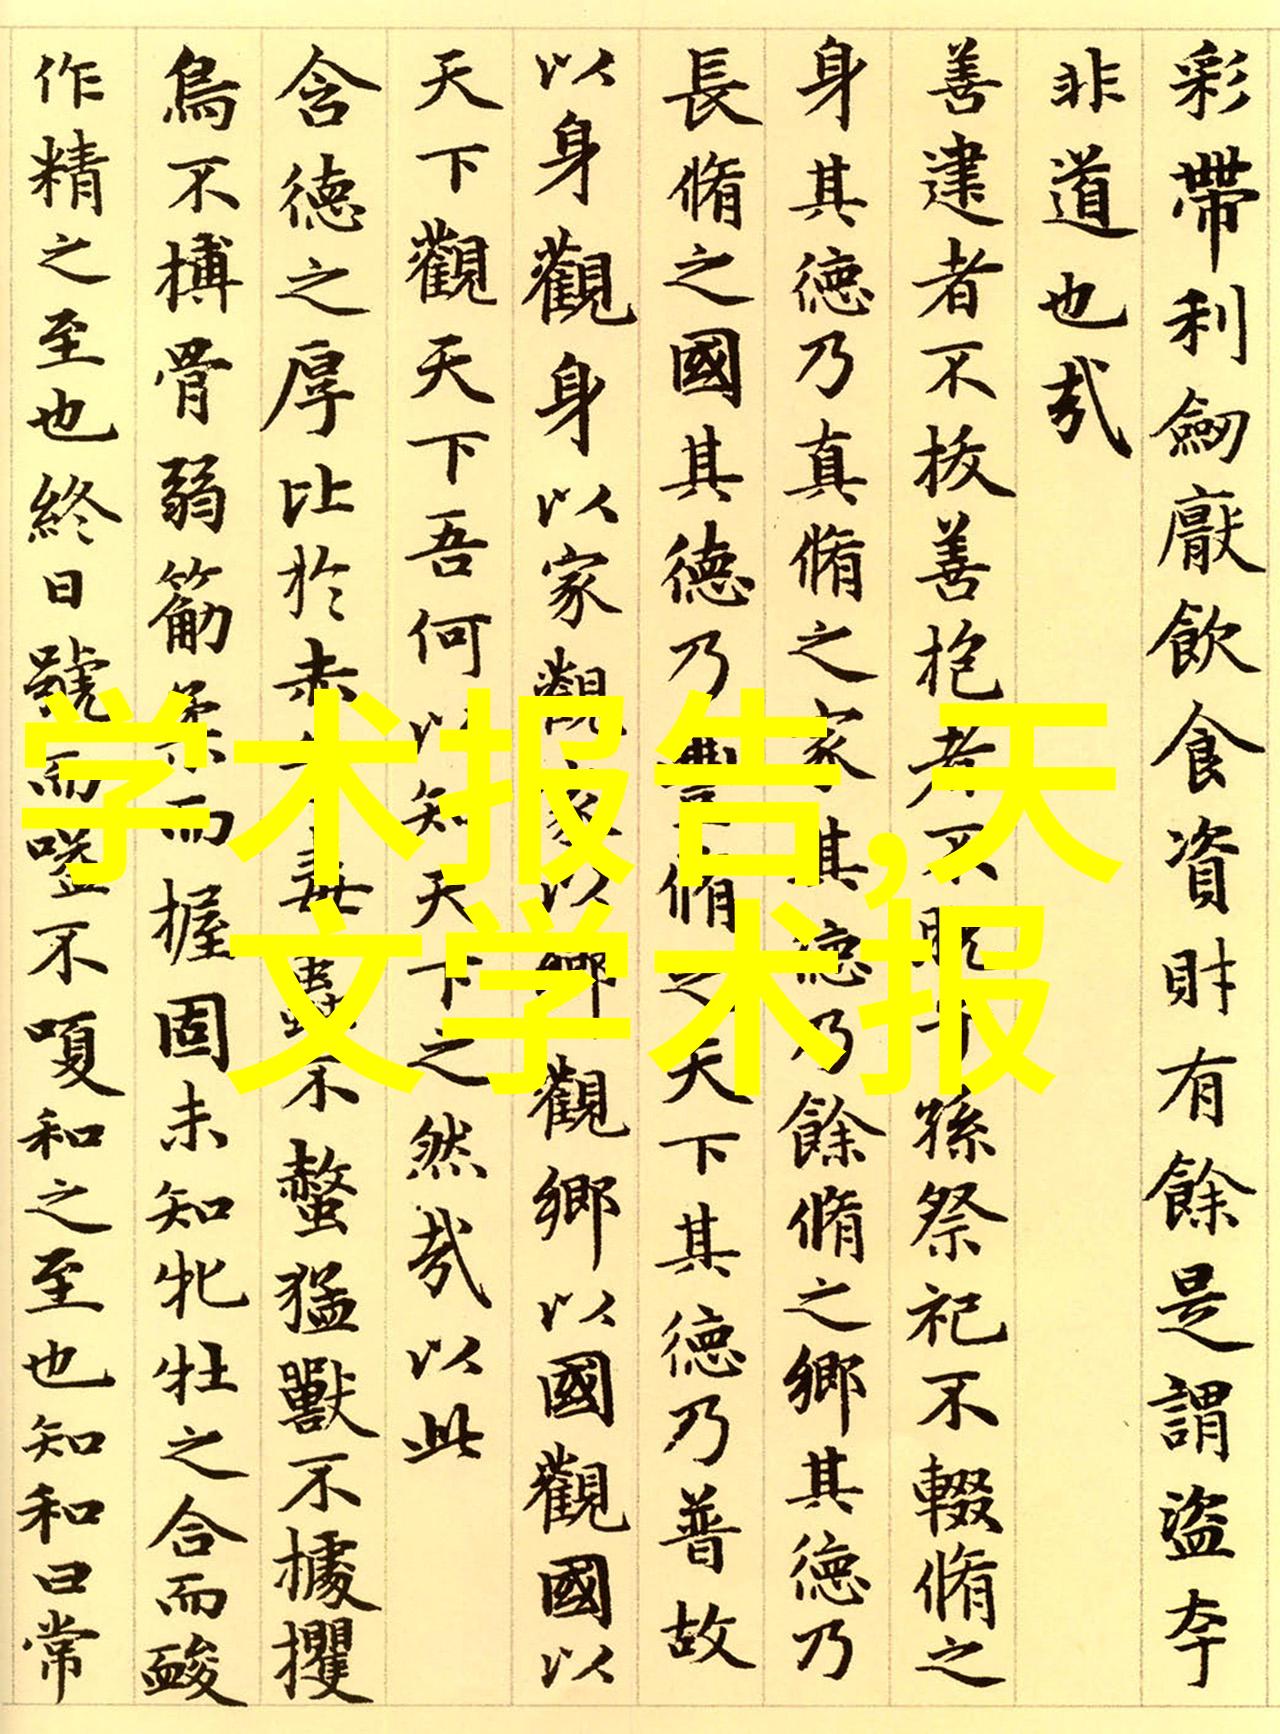 彩帶利劒厭飲食資財有餘是謂盜夸
非道也哉
善建者不拔善抱者不脫子孫祭祀不輟脩之
身其德乃真脩之家其德乃餘脩之鄉其德乃
長脩之國其德乃豐脩之天下其德乃普故
以身觀身以家觀家以鄉觀鄉以國觀國以
天下觀天下吾何以知天下之然哉以此
含德之厚比於赤子毒蟲不螫猛獸不據攫
鳥不搏骨弱筋柔而握固未知牝牡之合而䘒
作精之至也終日號而嗌不嗄和之至也知和曰常
学术报告,天
文学术报